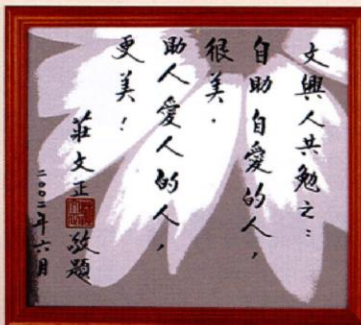 文興人共勉之：
自助自愛的人，
很美。
助人愛人的人，
更美！
莊文正 敬題
二〇〇二年六月